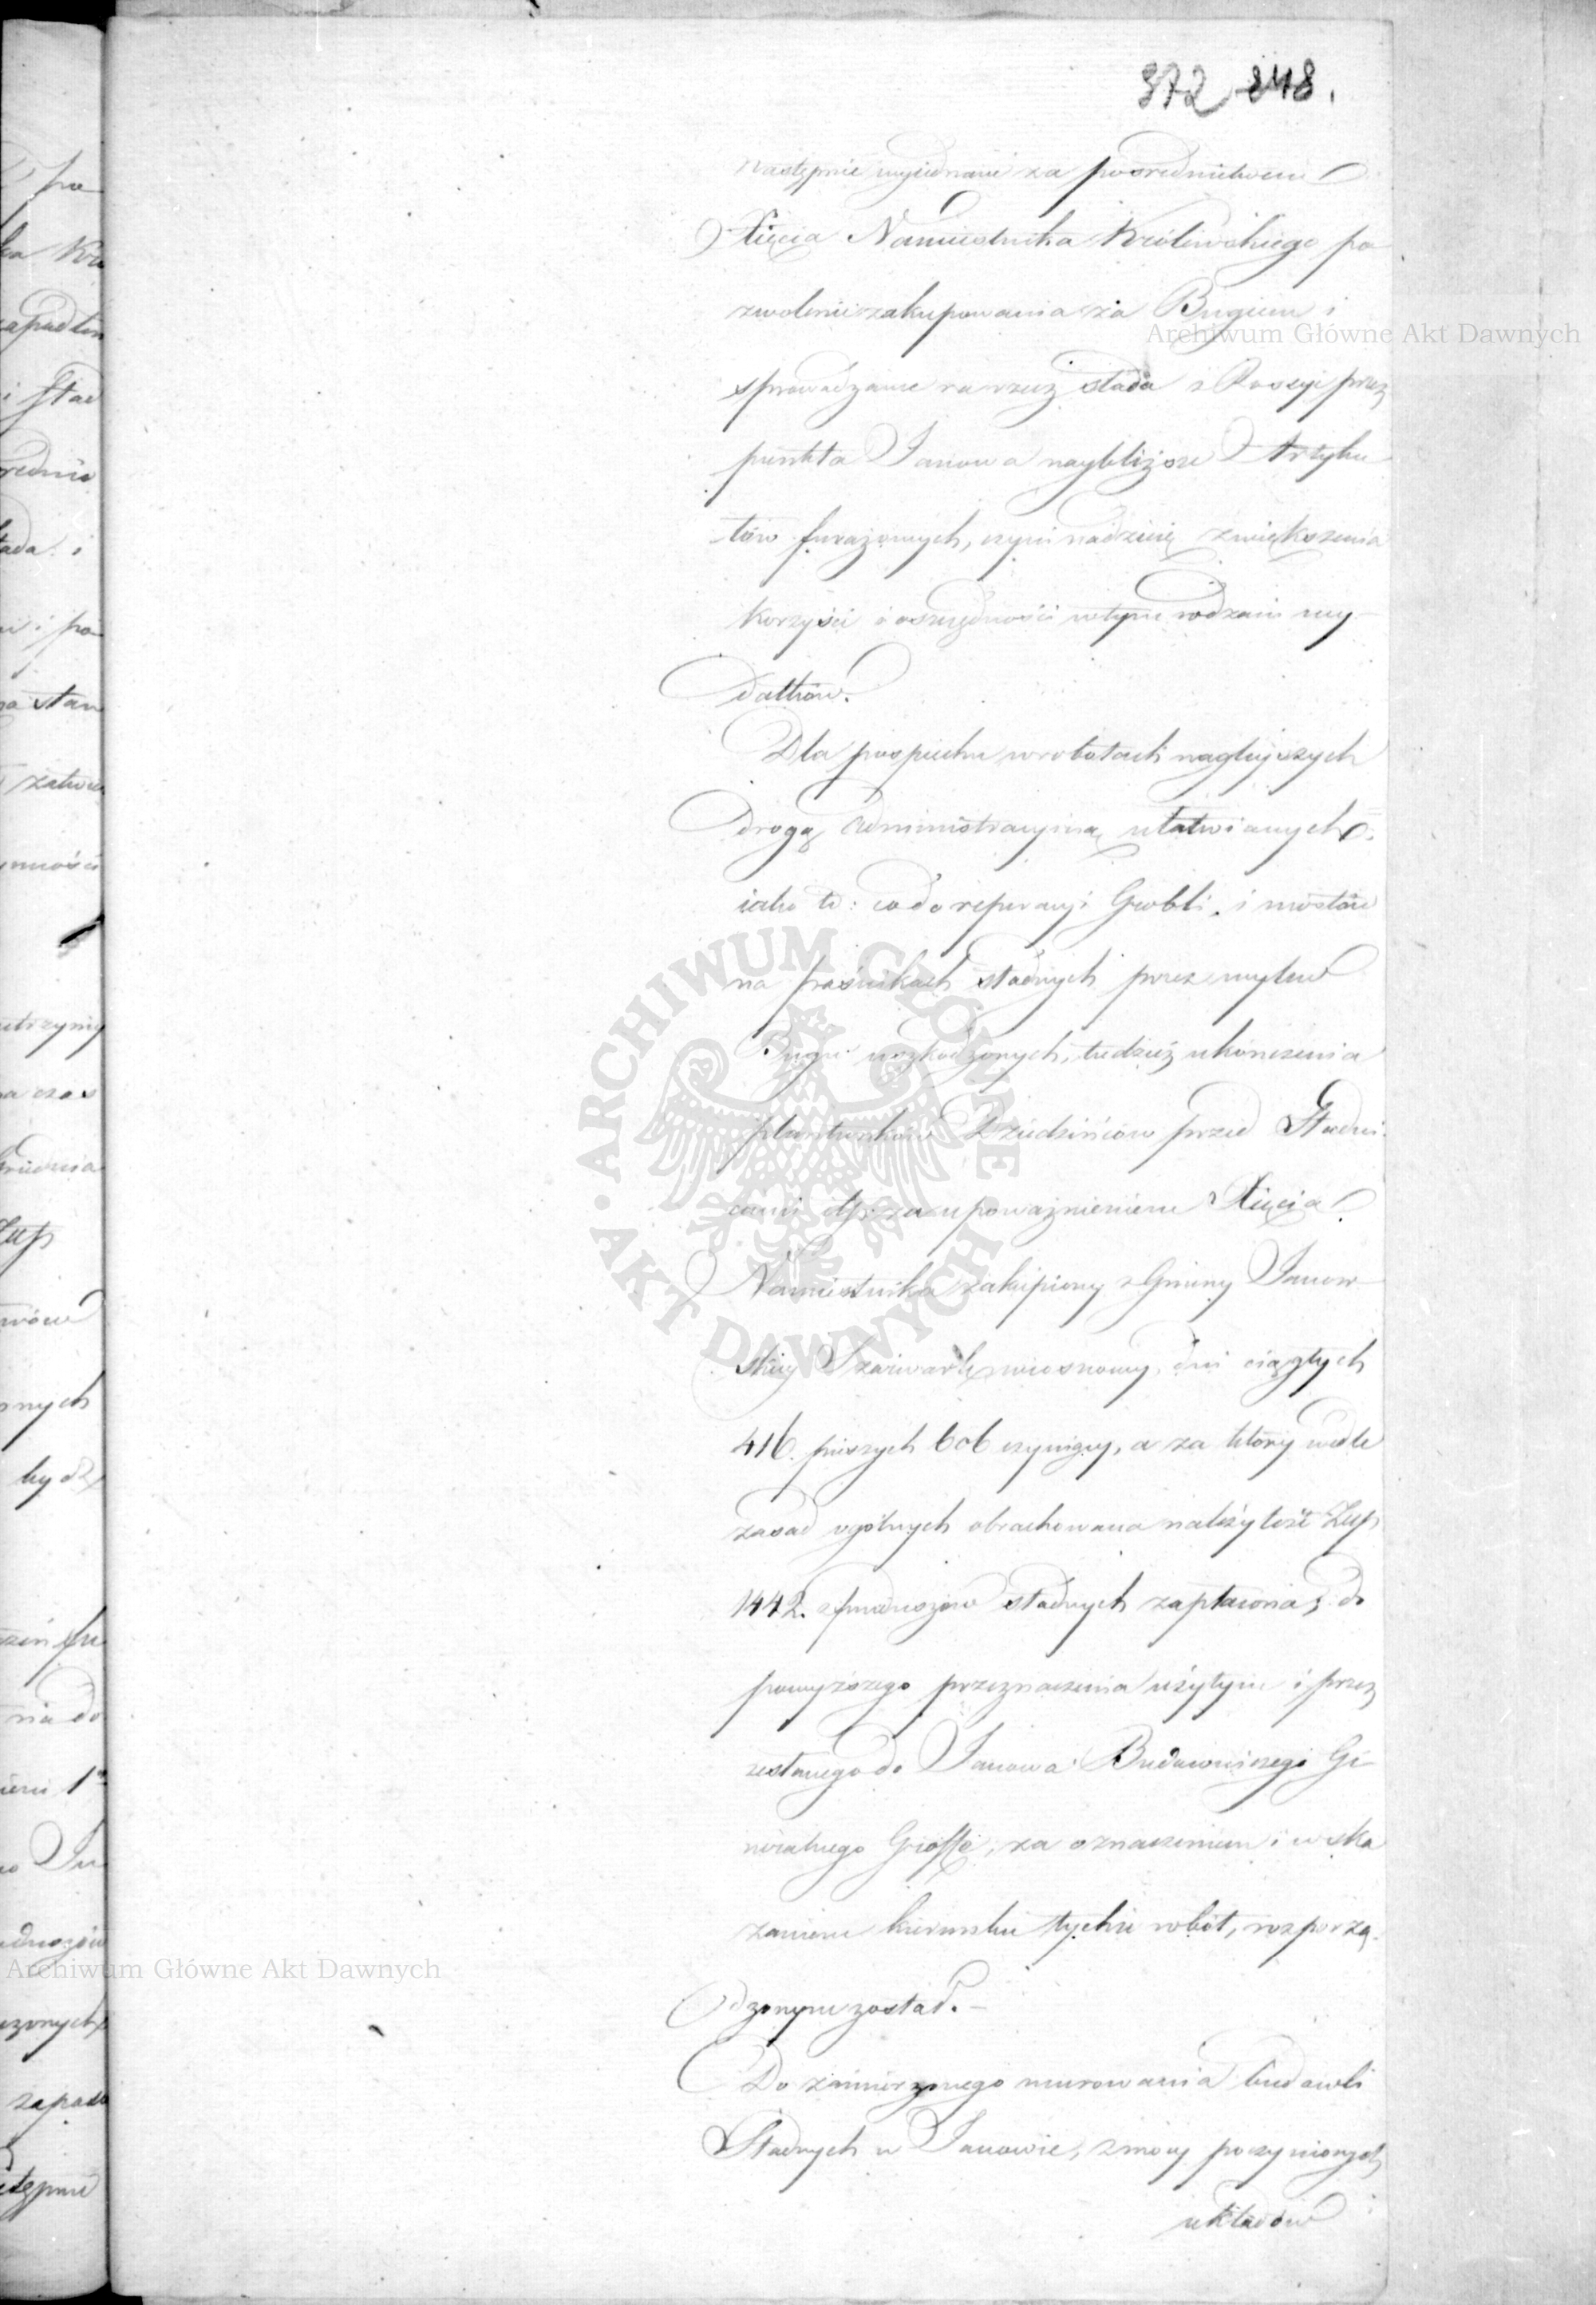 372 848.
następnie wyiednane za pośrednictwem
Xięcia Namiestnika Królewskiego po
zwolenie zakupowania za Bugiem i
Archiwum Główne Akt Dawnych
sprowadzanie na rzecz stada z Rossyi przez
punkta Janowa naybliższe Artyku
łów furażowych, czyni nadzieię zwiększenia
korzyści i oszczędności w tym rodzaiu wy-
datków.
Dla pospiechu w robotach nagleyszych
drogą Administracyiną ułatwianych
iako to: co do reperacyi Grobli i mostów
na paśnikach stadnych przez wylew
Bugu uszkodzonych, tudzież ukończenia
plantunków Dziedzińców przed Stadni-
cami etp. za upoważnieniem Xięcia
Namiestnika zakupiony z Gminy Janow-
skiey Szarwark wiosnowy, dni ciągłych
416. pieszych 606 czyniący, a za który wedle
zasad ogólnych obrachowana należytość Złp
1442. z funduszów stadnych zapłacona, do
powyższego przeznaczenia użytym i przez
zesłanego do Janowa Budowniczego Ge-
neralnego Groffe, za oznaczeniem i wska
zaniem kierunku tychże robót, rozporzą-
dzonym został.-
Do zamierzonego murowania budowli
Stadnych w Janowie, z mocy poczynionych
układów
ARCHIWUM GŁÓWNE AKT DAWNYCH
Archiwum Główne Akt Dawnych